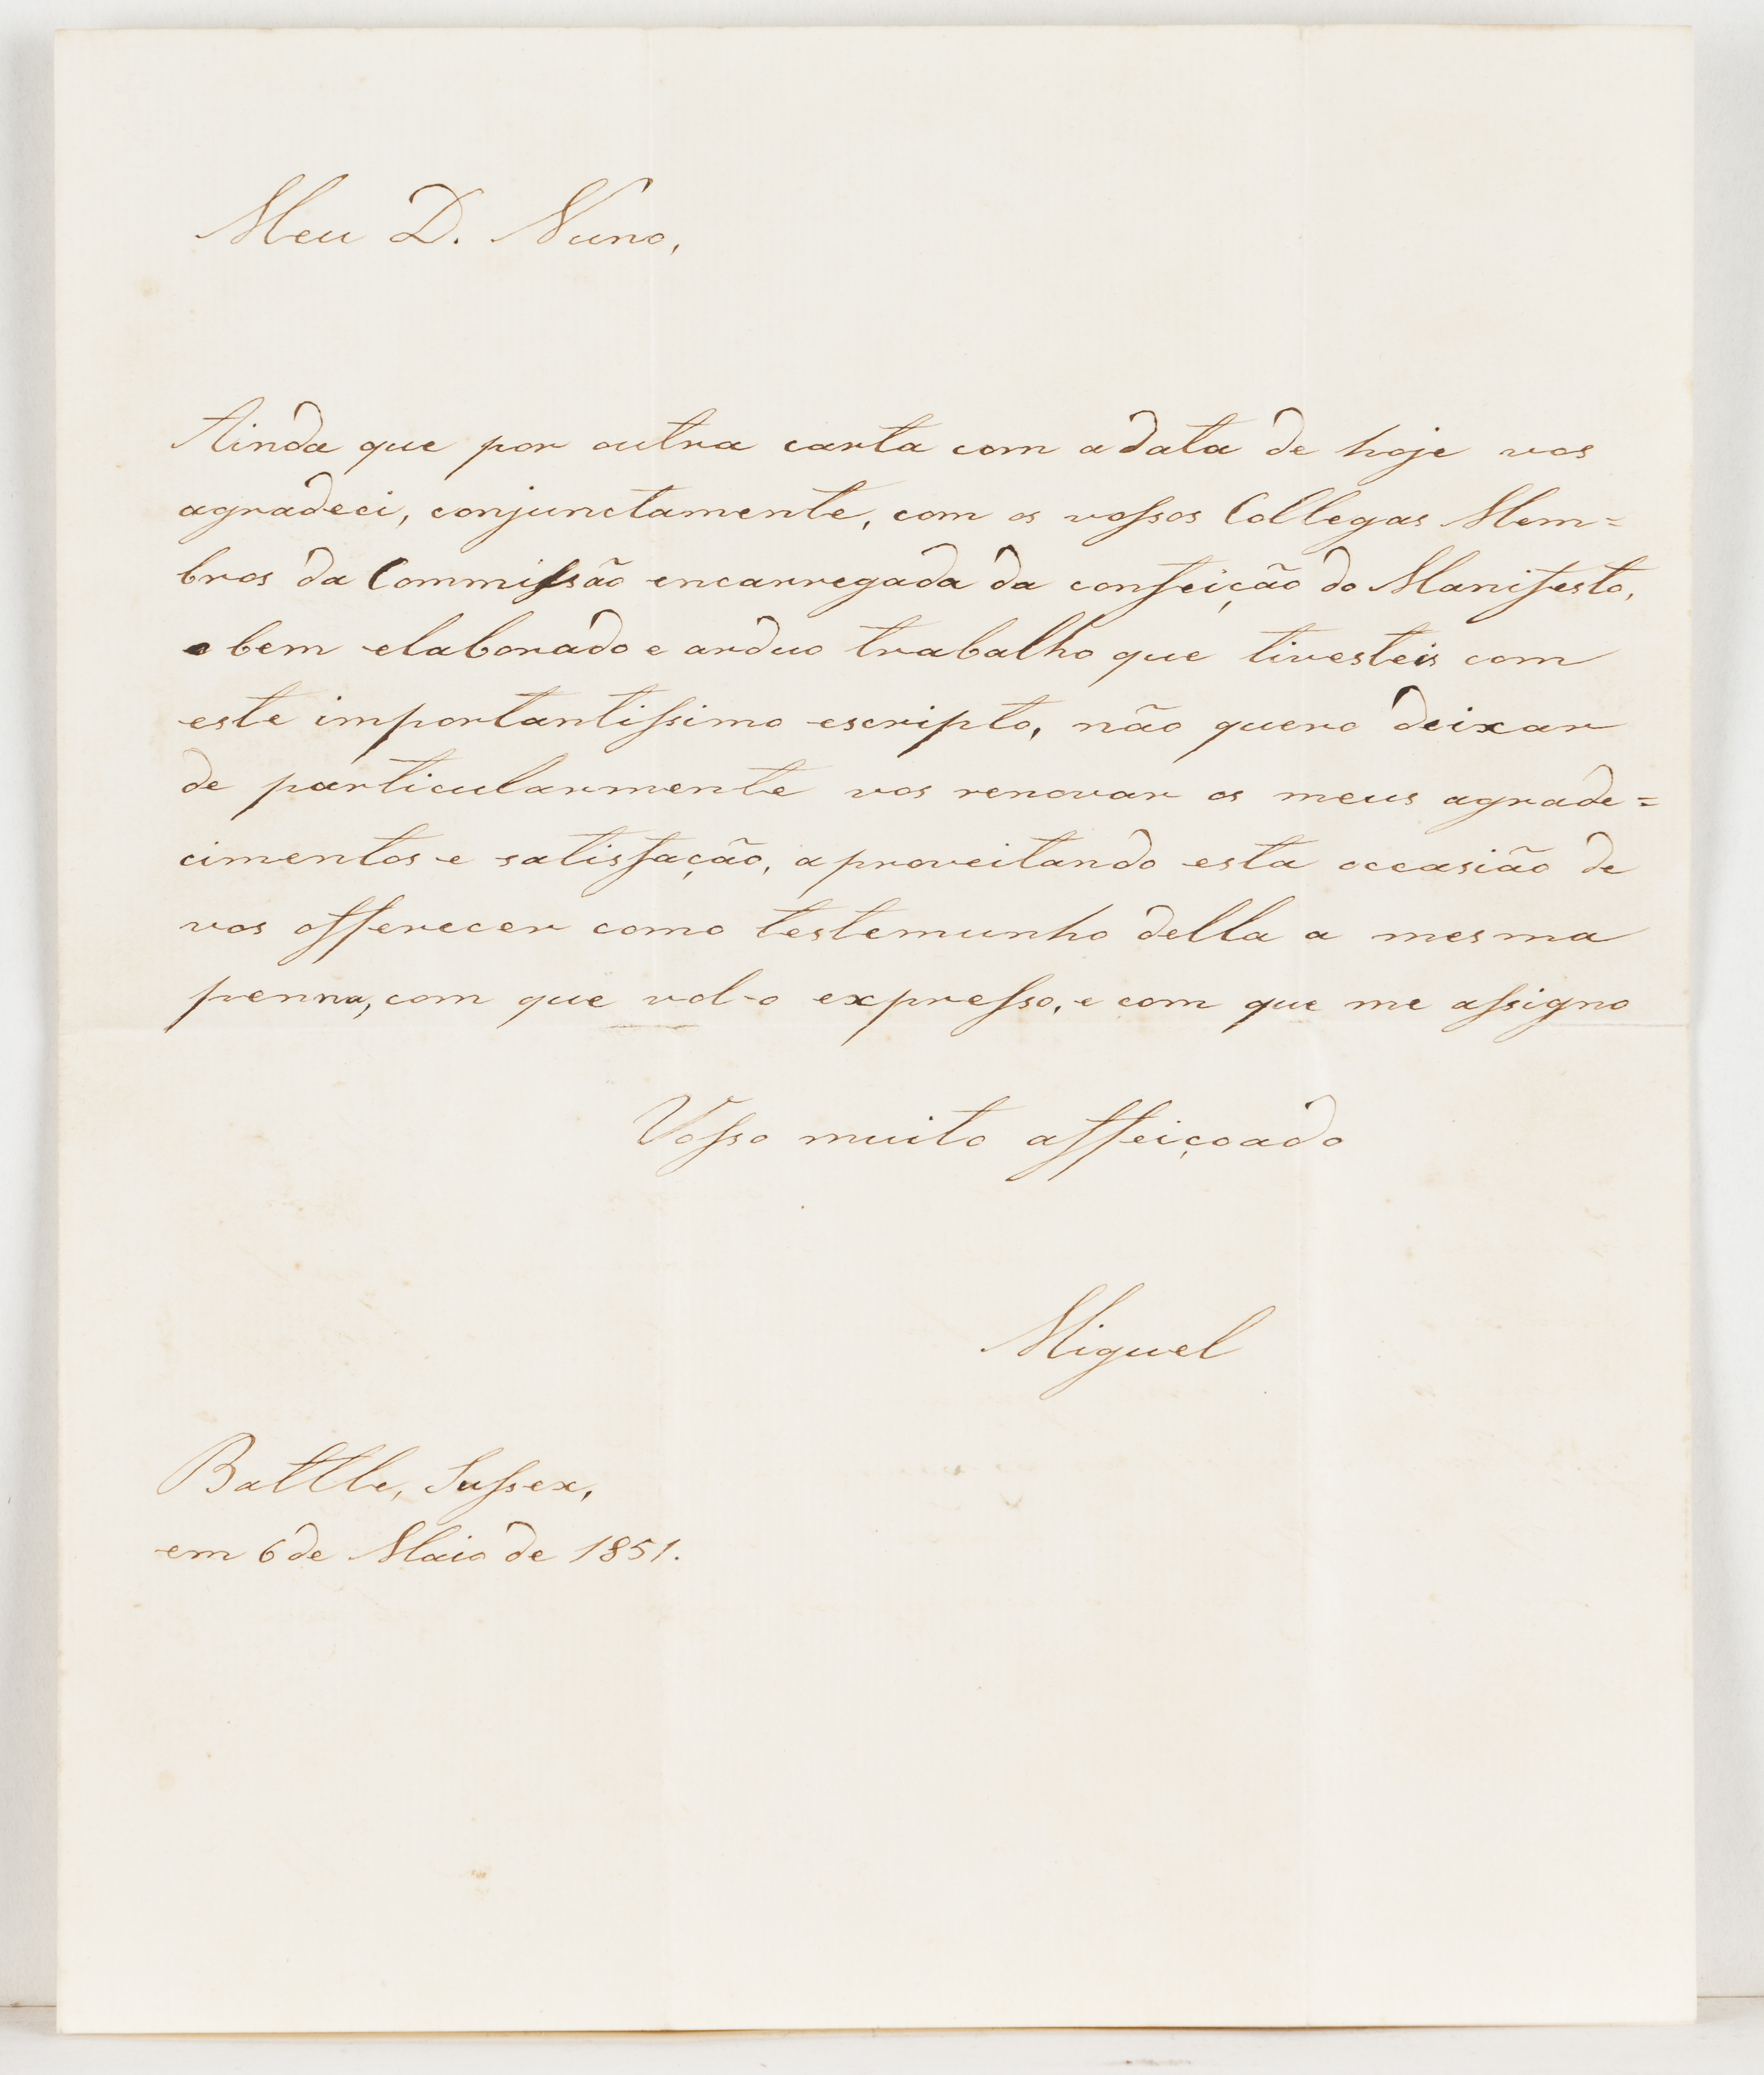 Meu D. Nuno,
Ainda que por outra carta com a data de hoje vos
agradeci, conjunctamente, com os vossos Collegas Mem=
bros da Commissão encarregada da confeição do Manifesto,
o bem elaborado e arduo trabalho que tivesteis com
este importantissimo escripto, não quero deixar
de particularmente vos renovar os meus agrade=
cimentos e satisfação, aproveitando esta occasião de
vos offerecer como testemunho della a mesma
penna, com que vol-o expresso, e com que me assigno
Vosso muito affeiçoado
Miguel
Battle, Sussex,
em 6 de Maio de 1851.